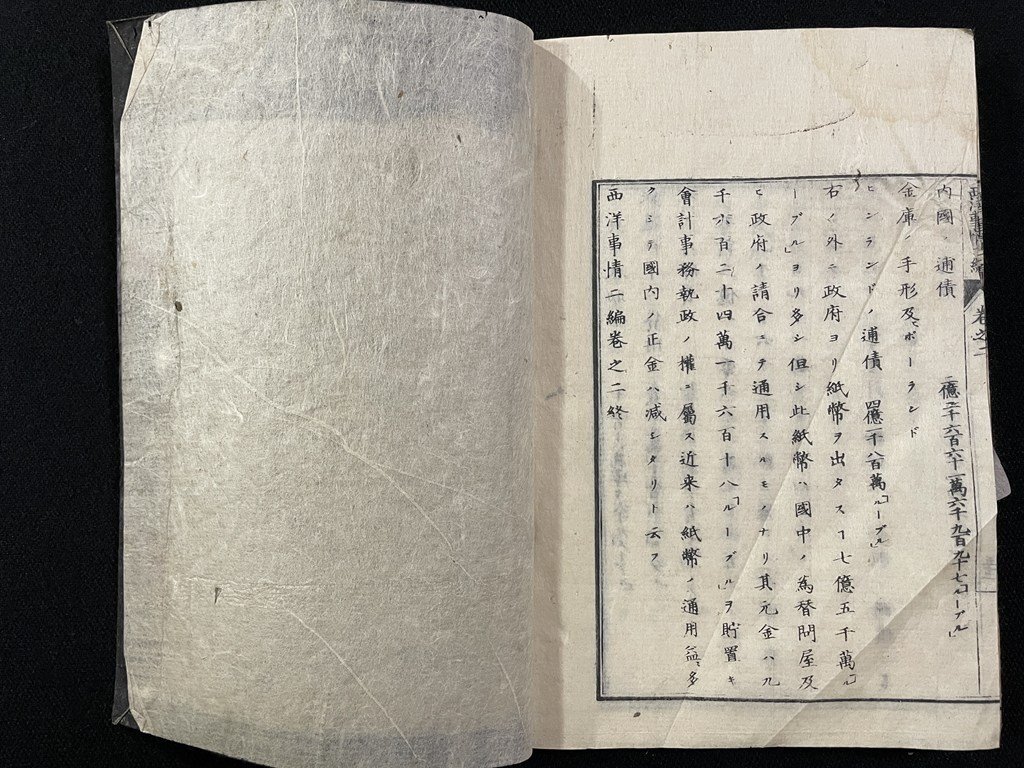 西洋事情二編
卷之二
内國ノ逋債 二億二千六百六十一萬六千九百九十七「ルーブル」
金庫ノ手形及ボーランド
ヒンランドノ逋債 四億一千八百萬「ルーブル」
右ノ外ニ政府ヨリ紙幣ヲ出タスヿ七億五千萬「ル
ーブル」ヨリ多シ但シ此紙幣ハ國中ノ爲替問屋及
ヒ政府ノ請合ニテ通用スルモノナリ其元金ハ九
千六百二十四萬一千六百十八「ルーブル」ヲ貯置キ
會計事務執政ノ權ニ屬ス近来ハ紙幣ノ通用益多
クシテ國内ノ正金ハ减シタリト云フ
西洋事情二編卷之二終